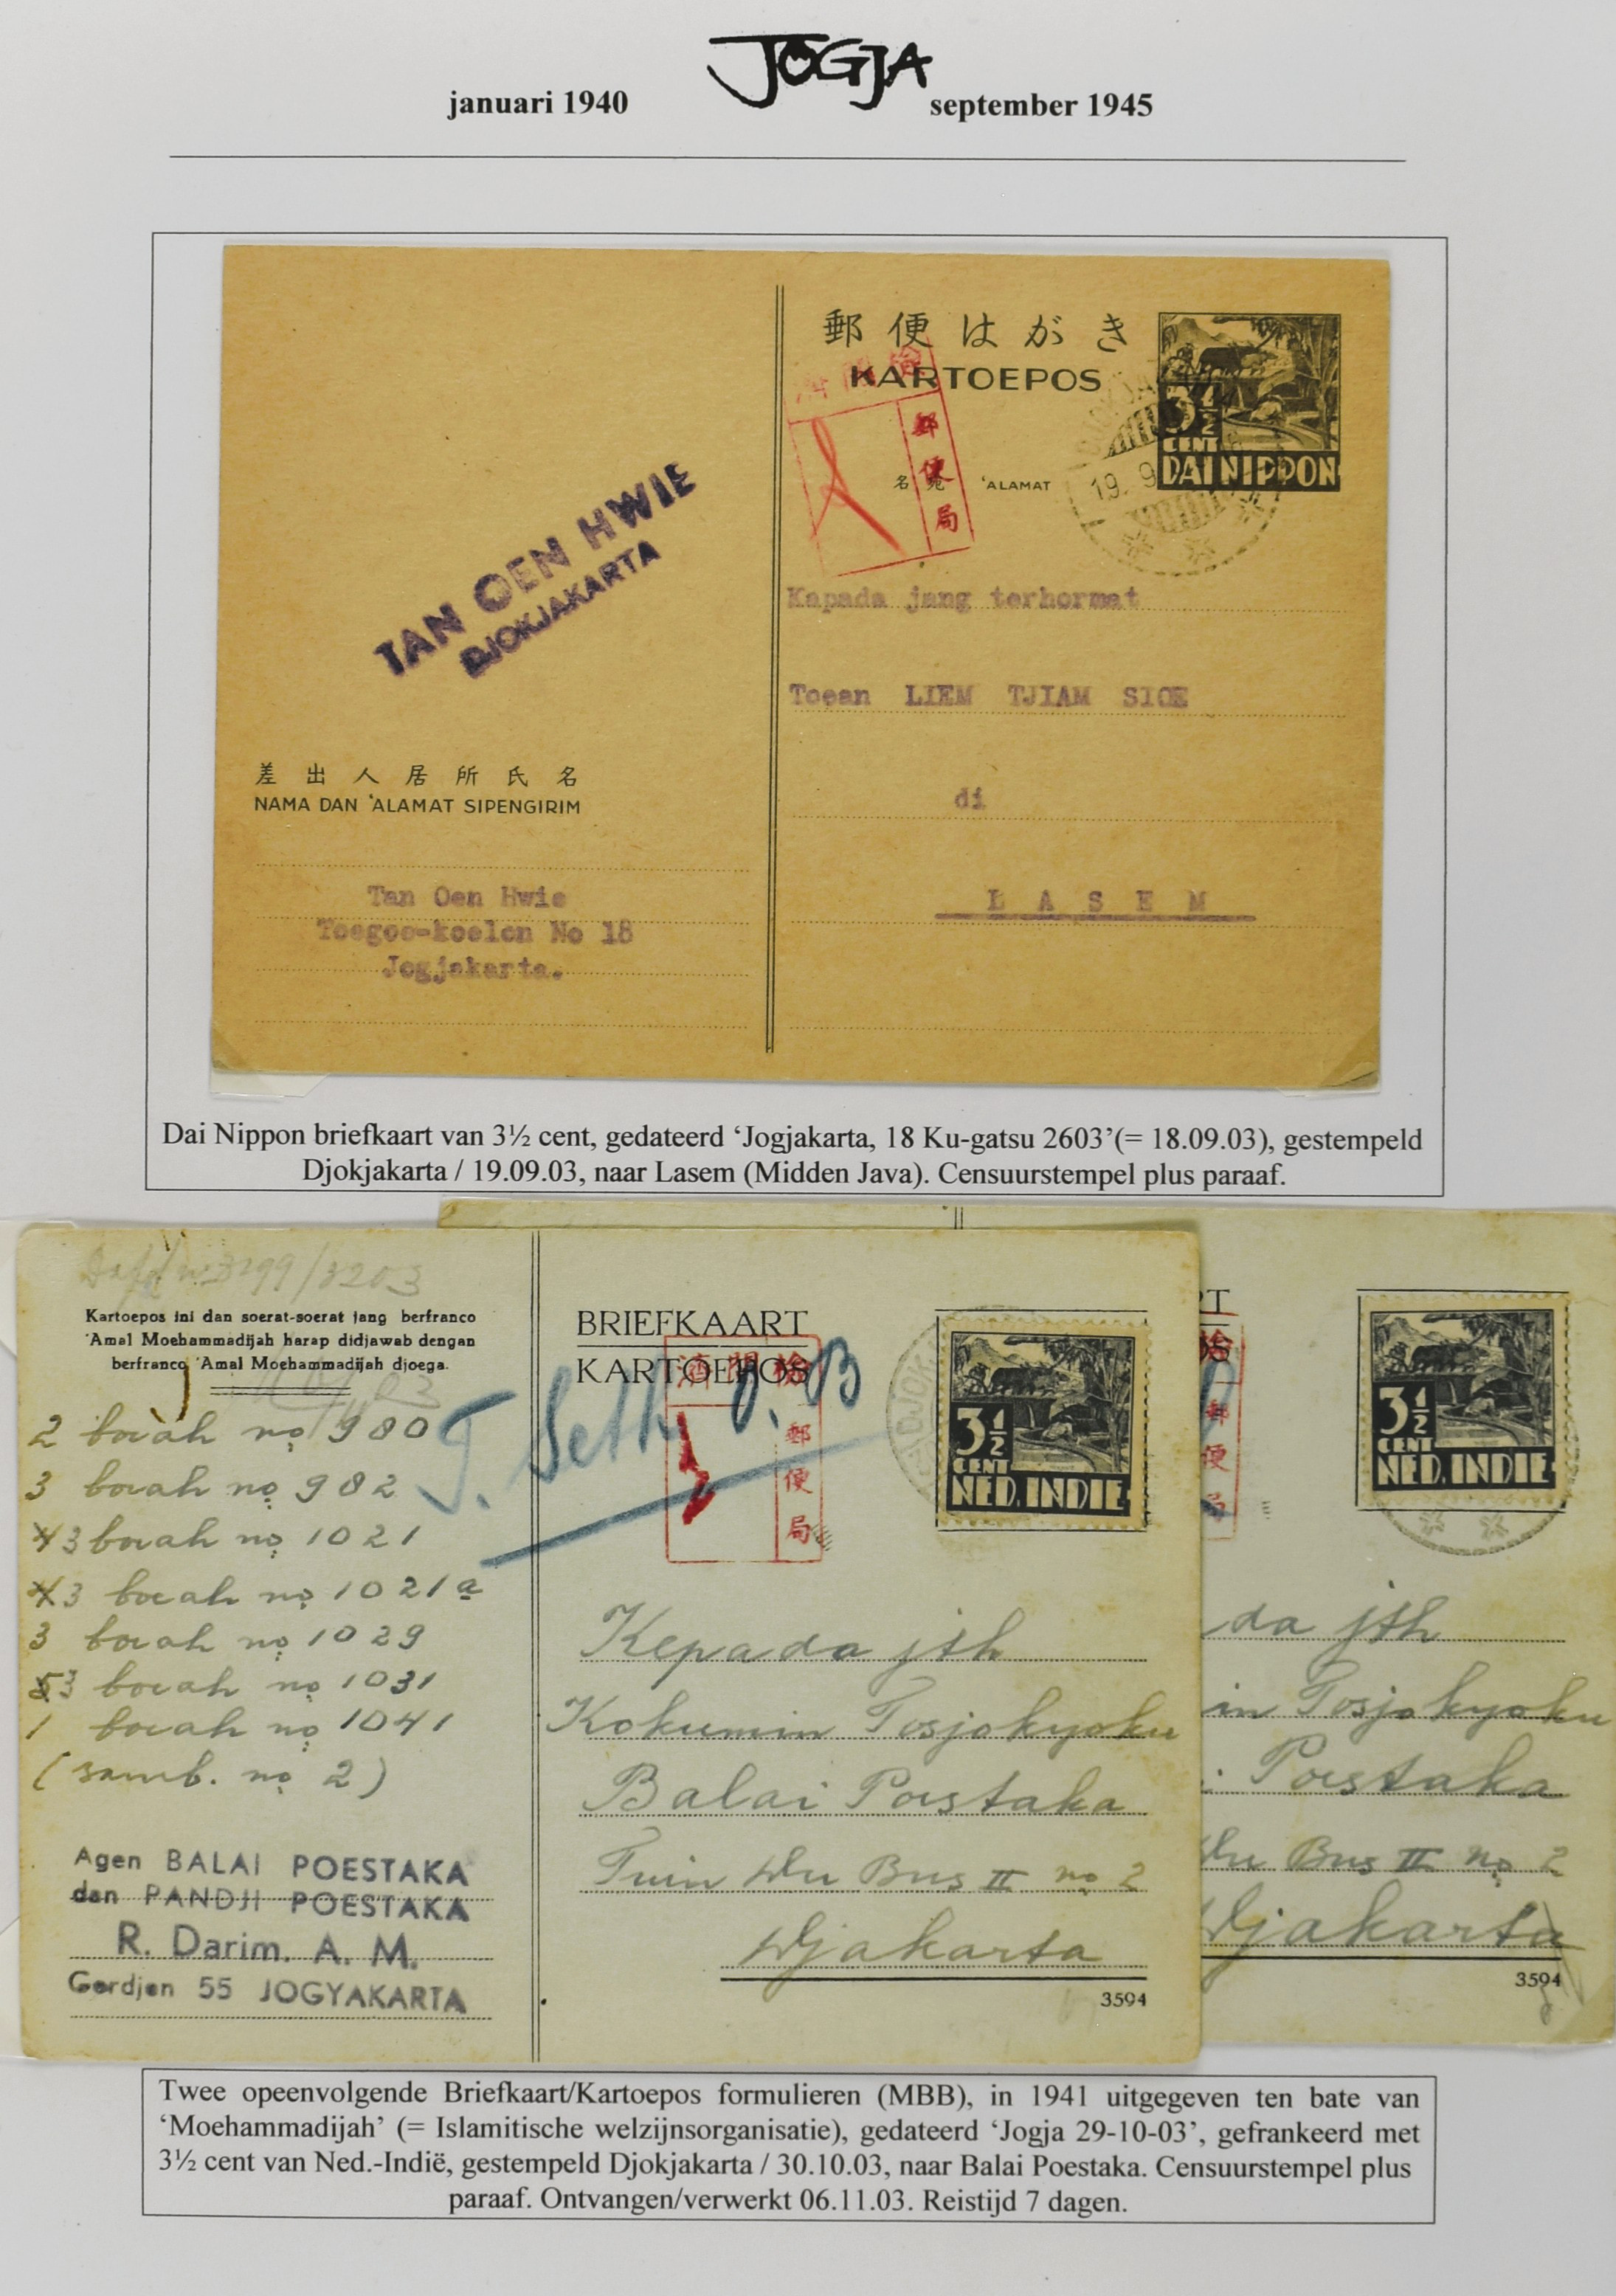 JOGJA
januari 1940 september 1945
郵便はがき
KARTOEPOS
検閲済
郵便局
名宛 'ALAMAT
3½
CENT
DAI NIPPON
19. 9
TAN OEN HWIE
DJOKJAKARTA
Kapada jang terhormat
Toean LIEM TJIAM SIOE
di
L A S E M
差出人居所氏名
NAMA DAN 'ALAMAT SIPENGIRIM
Tan Oen Hwie
Toegoe-koelon No 18
Jogjakarta.
Dai Nippon briefkaart van 3½ cent, gedateerd ‘Jogjakarta, 18 Ku-gatsu 2603’(= 18.09.03), gestempeld
Djokjakarta / 19.09.03, naar Lasem (Midden Java). Censuurstempel plus paraaf.
3299/3203
Kartoepos ini dan soerat-soerat jang berfranco
'Amal Moehammadijah harap didjawab dengan
berfranco 'Amal Moehammadijah djoega.
2 boeah no 980
3 boeah no 982
3 boeah no 1021
3 boeah no 1021a
3 boeah no 1029
3 boeah no 1031
1 boeah no 1041
(samb. no 2)
Agen BALAI POESTAKA
dan PANDJI POESTAKA
R. Darim. A. M.
Gerdjen 55 JOGYAKARTA
BRIEFKAART
KARTOEPOS
検閲済
郵便局
DJOK
3½
CENT
NED. INDIE
Kepada jth
Kokumin Tosjokyoku
Balai Poestaka
Tuin Du Bus II no 2
Djakarta
3594
RT
OS
検
郵便局
3½
CENT
NED. INDIE
da jth
in Tosjokyoku
. Poestaka
Du Bus II no 2
Djakarta
3594
Twee opeenvolgende Briefkaart/Kartoepos formulieren (MBB), in 1941 uitgegeven ten bate van
‘Moehammadijah’ (= Islamitische welzijnsorganisatie), gedateerd ‘Jogja 29-10-03’, gefrankeerd met
3½ cent van Ned.-Indië, gestempeld Djokjakarta / 30.10.03, naar Balai Poestaka. Censuurstempel plus
paraaf. Ontvangen/verwerkt 06.11.03. Reistijd 7 dagen.